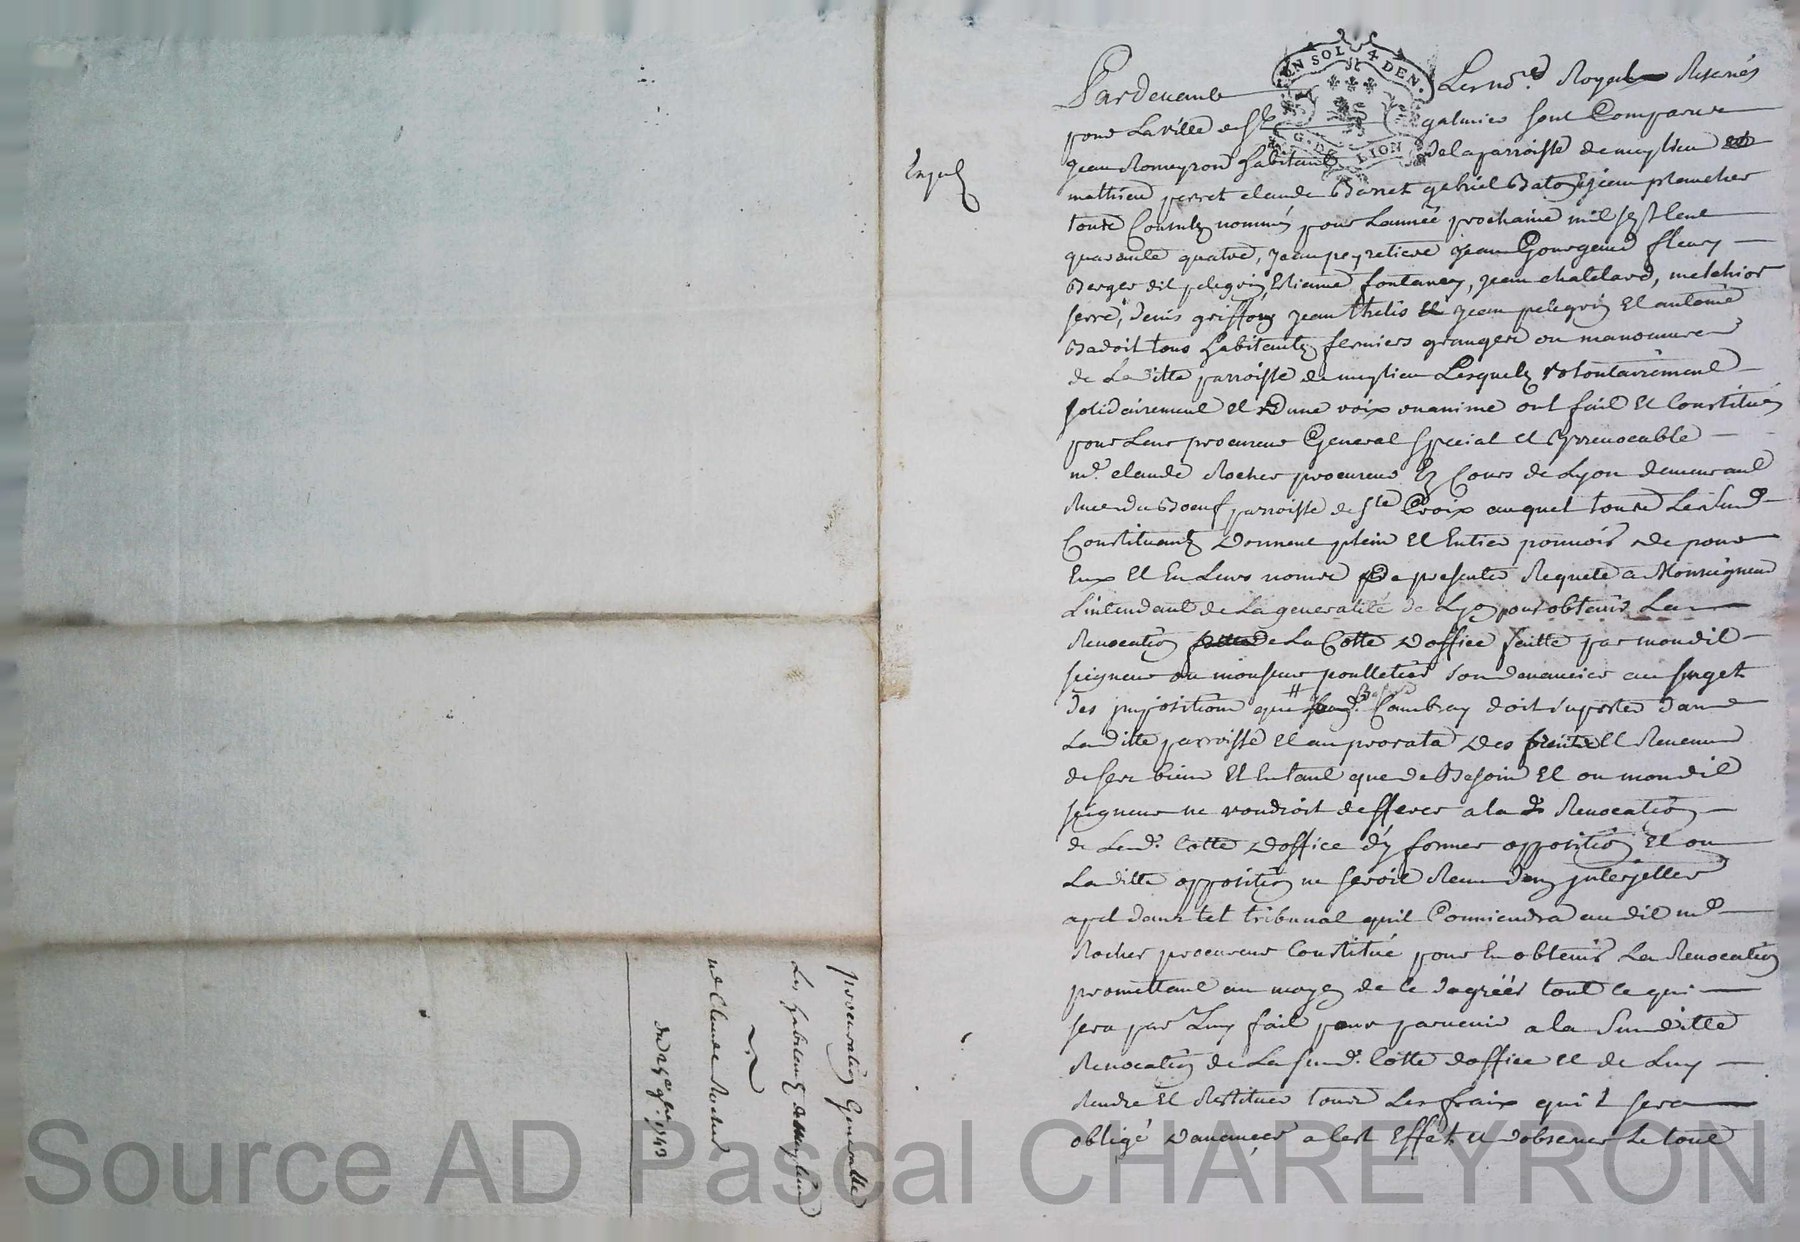 Pardevant Les no.res Royaux Reservés
pour La ville de St galmier sont Comparus
jean Romeyron habitant de la parroisse de meylieu
mathieu perret claude Barret gebriel Baton jean plancher
tous Consuls nommés pour L'année prochaine mil sept cent
quarante quatre, jean peyretiere jean Gourgeaud fleury
Berger dit pelegrin, Etienne fontaney, jean chatelard, melchior
serre, denis griffon jean thelis jean pelegrin Et antoine
Badoit tous habitants fermiers grangers ou manoeuvres
de La ditte parroisse de meylieu Lesquels volontairement
solidairement et D'une voix unanime ont fait Et Constitué
pour Leur procureur General special et Yrrevocable
me. claude Rocher procureur Ez Cours de Lyon demeurant
Rue du Boeuf parroisse de Ste Croix auquel tous Les sud.
Constituants Donnent plein Et Entier pouvoir De pour
Eux Et En Leurs noms De presenter Requete a Monseigneur
L'intendant de La generalité de Lyon pour obtenir La
Revocation de La Cotte D'office faitte par mondit
seigneur ou monsieur poulletier son devancier au sujet
des jmpositions que Cambray doit suporter dans
La ditte parroisse Et au prorata Des fruits Et Revenus
de ses biens Et En tant que de Besoin Et ou mondit
seigneur ne voudroit defferer a la de Revocation
de Lad. Cotte D'office d'y former opposition Et ou
La ditte opposition ne seroit Reçeu d'en jnterjetter
apel dans tel tribunal qu'il Conviendra audit me
Rocher procureur Constitué pour En obtenir La Revocation
promettant au moyen de ce d'agréer tout ce qui
sera par Luy fait pour parvenir a la Susditte
Revocation de La sud. Cotte d'office et de Luy
Rendre Et Restituer tous Les fraix qui l sera
obligé D'avancer a cest Effet Et d'observer Le tout
procuration Generalle
Les habitants de Meylieu
a
me Claude Rocher
du 25e 9bre 1743
EN SOL 4 DEN.
G. DE LION
Source AD Pascal CHAREYRON